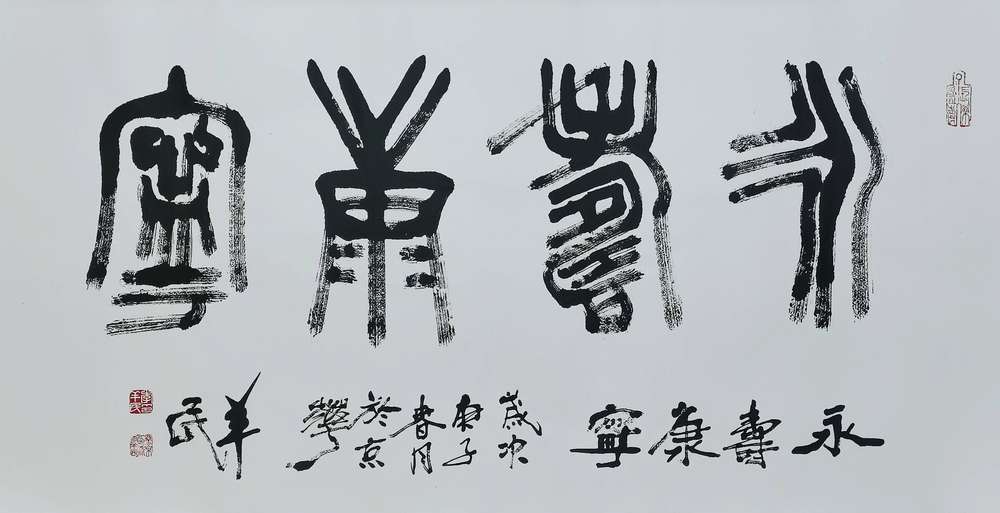 永壽康寧
永壽康寧
歲次
庚子
春月
於京
華
羊民